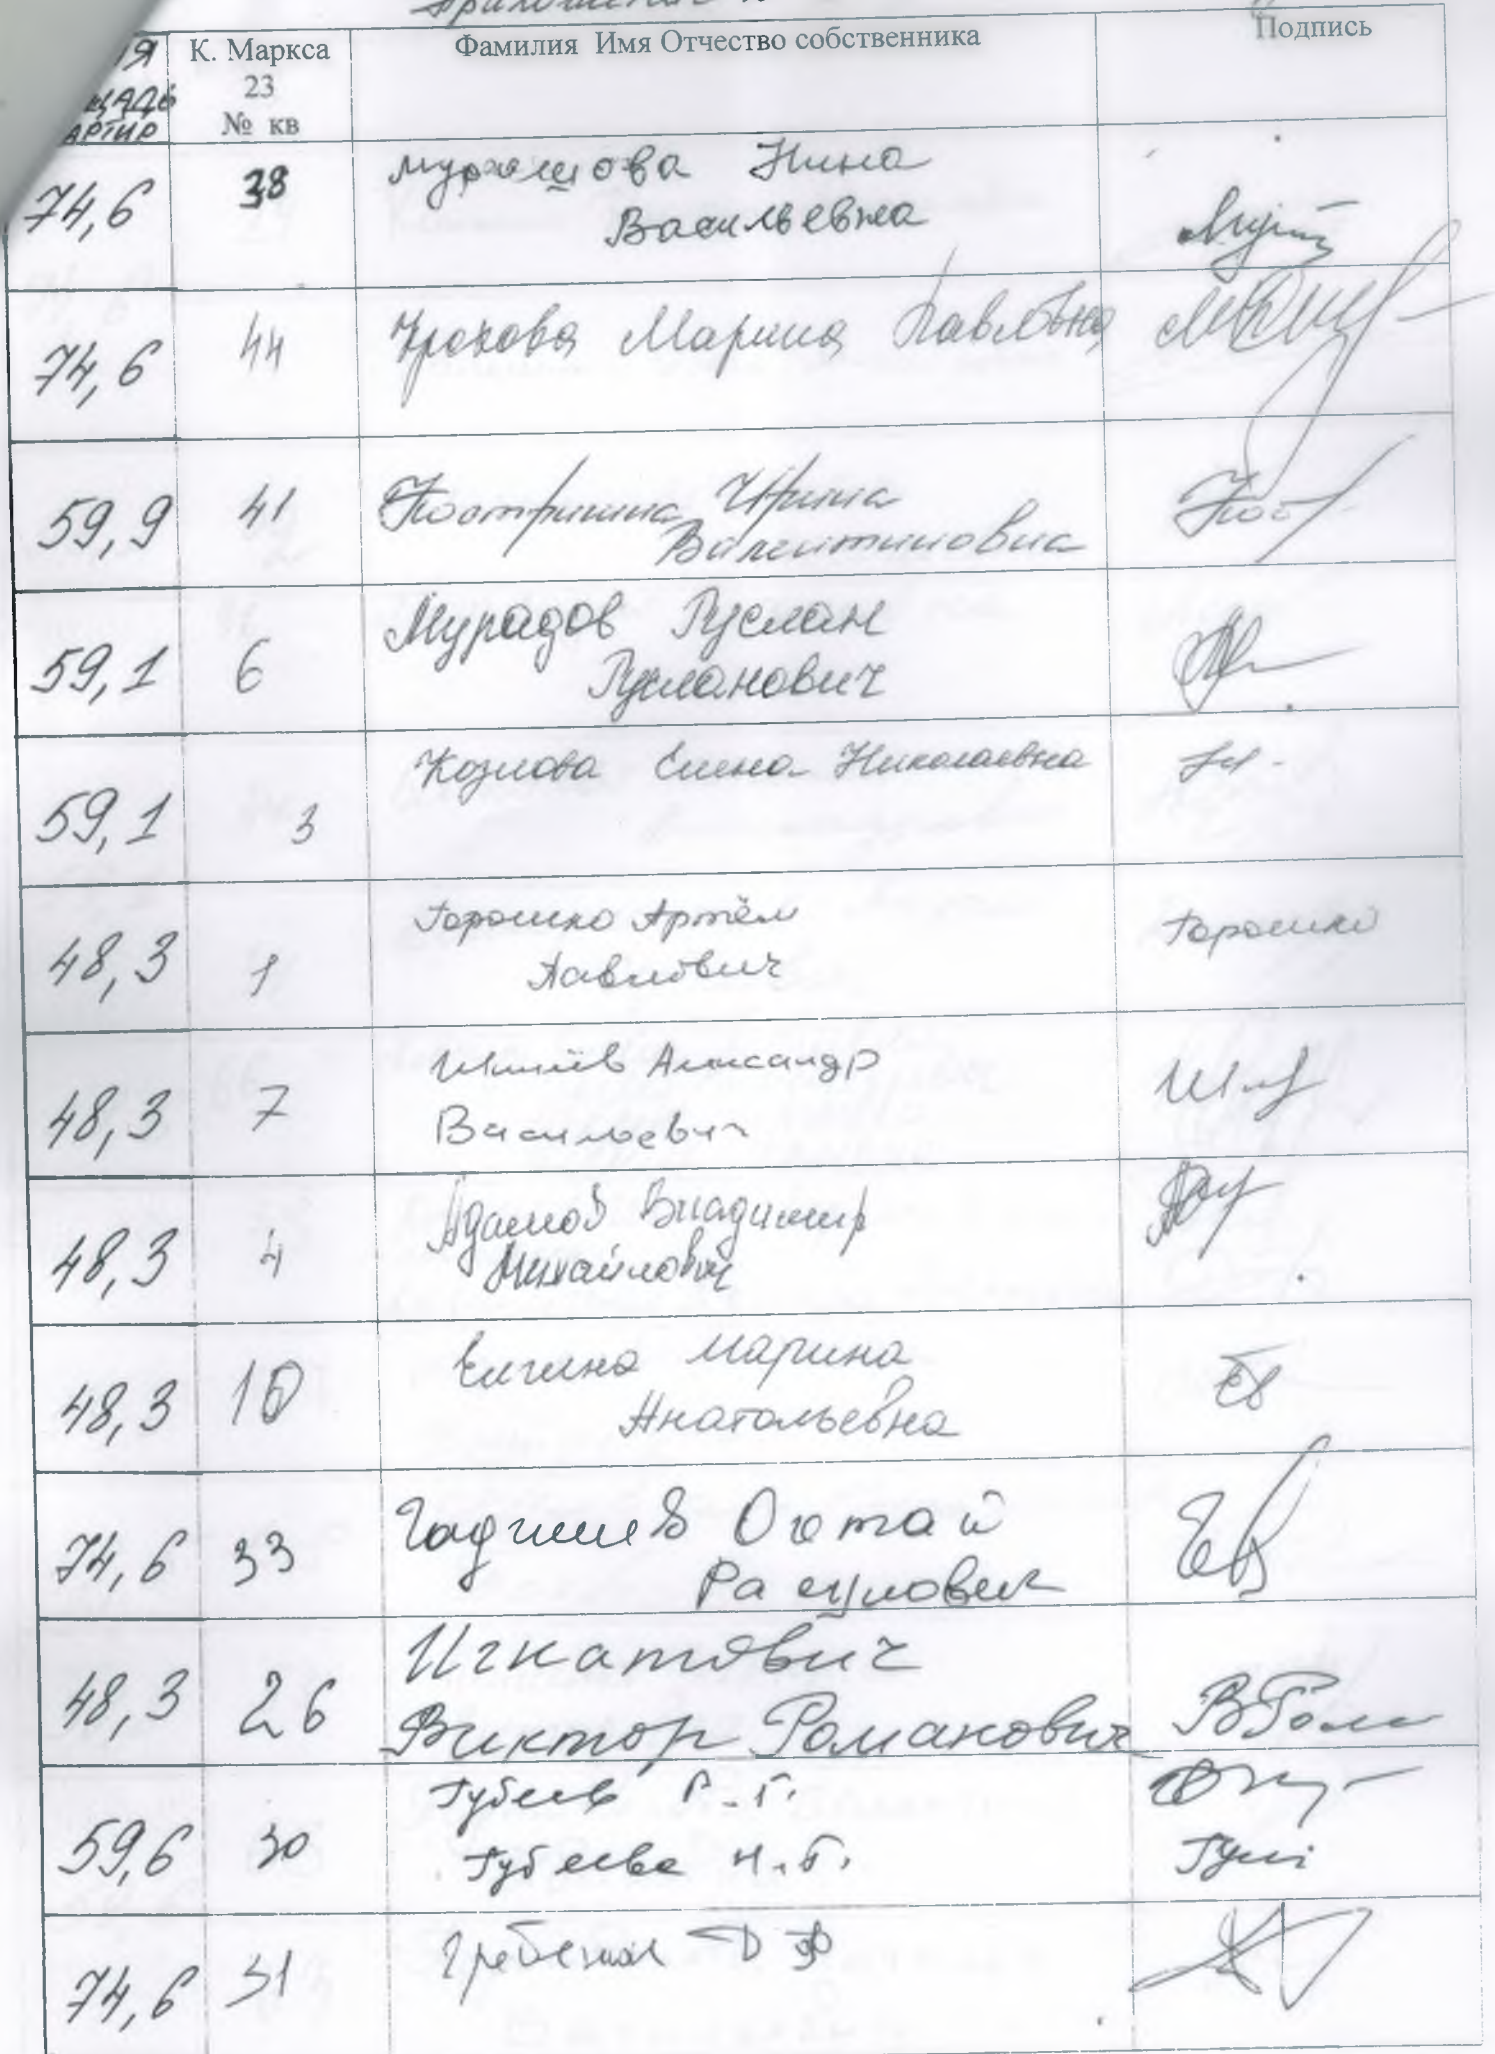 Приложение
К. Маркса
23
№ кв
Фамилия Имя Отчество собственника
Подпись
74,6 38 Мурашова Нина
Васильевна
74,6 44 Марина Павловна
59,9 41 Костришина Ирина
Валентиновна
59,1 6 Мурадов Руслан
Русланович
59,1 3 Козлова Елена Николаевна
48,3 1 Горошко Артём Горошко
Павлович
48,3 7 Александр
Васильевич
48,3 4 Адамов Владимир
Михайлович
48,3 10 Елгина Марина
Анатольевна
74,6 33 Гаджиев Октай
Расулович
48,3 26 Игнатович
Виктор Романович
59,6 30 Губеев Р.Г.
Губеева Н.Г.
74,6 31